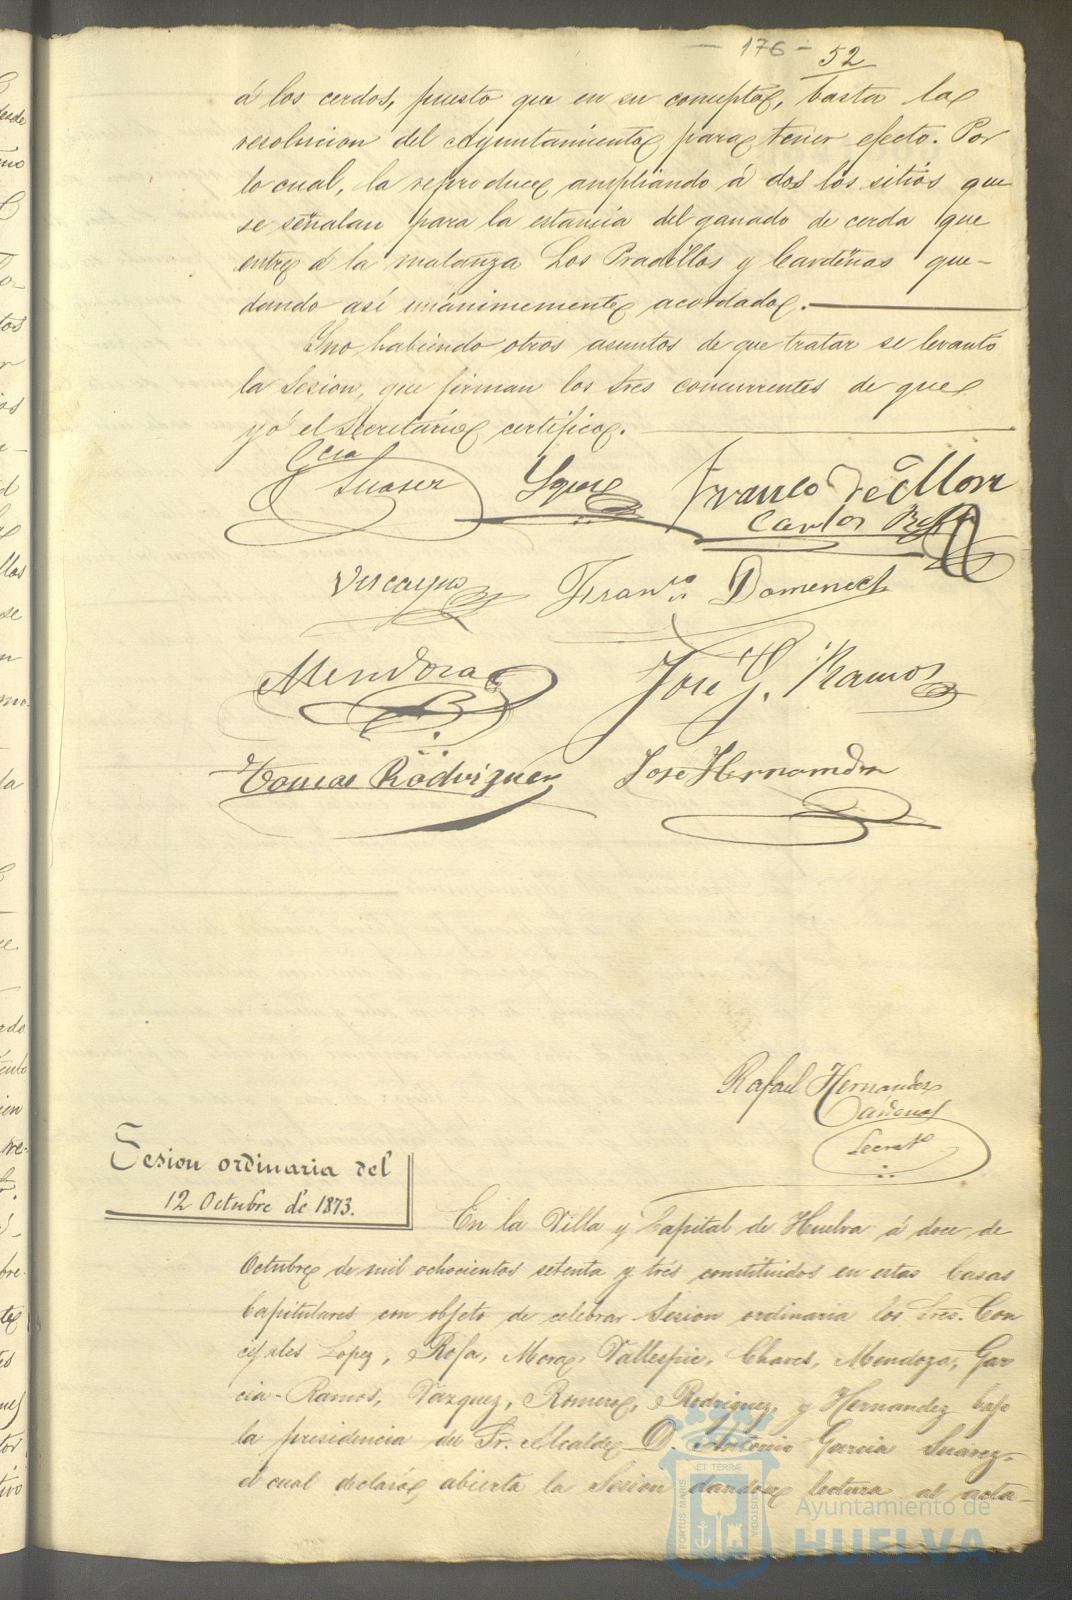 - 176 -
52
á los cerdos, puesto que en su concepto, basta la
resolucion del Ayuntamiento para tener efecto. Por
lo cual, la reproduce ampliando á dos los sitios que
se señalan para la estancia del ganado de cerda que
entre á la matanza Los Pradillos y Cardeñas que-
dando así unánimemente acordado.
Y no habiendo otros asuntos de que tratar se levantó
la Sesion, que firman los Sres concurrentes de que
yó el Secretario certifico.
Gcia
Suarez
Franco de Mora
Carlos Rofa
Vizcayno
Franco Domenech
Mendoza
José G. Ramos
Tomas Rodriguez
José Hernandez
Rafael Hernandez
Cárdenas
Secreto
Sesion ordinaria del
12 Octubre de 1873.
En la Villa y Capital de Huelva á doce de
Octubre de mil ochocientos setenta y tres constituidos en estas Casas
Capitulares con objeto de celebrar Sesion ordinaria los Sres. Con
cejales Lopez, Rofa, Mora, Vallespin, Chaves, Mendoza, Gar
cia-Ramos, Vazquez, Romero, Rodriguez, y Hernandez bajo
la presidencia del Sr. Alcalde D. Antonio Garcia Suarez,
el cual declaró abierta la Sesion dandose lectura al acta
PORTUS MARIS ET TERRÆ CUSTODIA
Ayuntamiento de
HUELVA